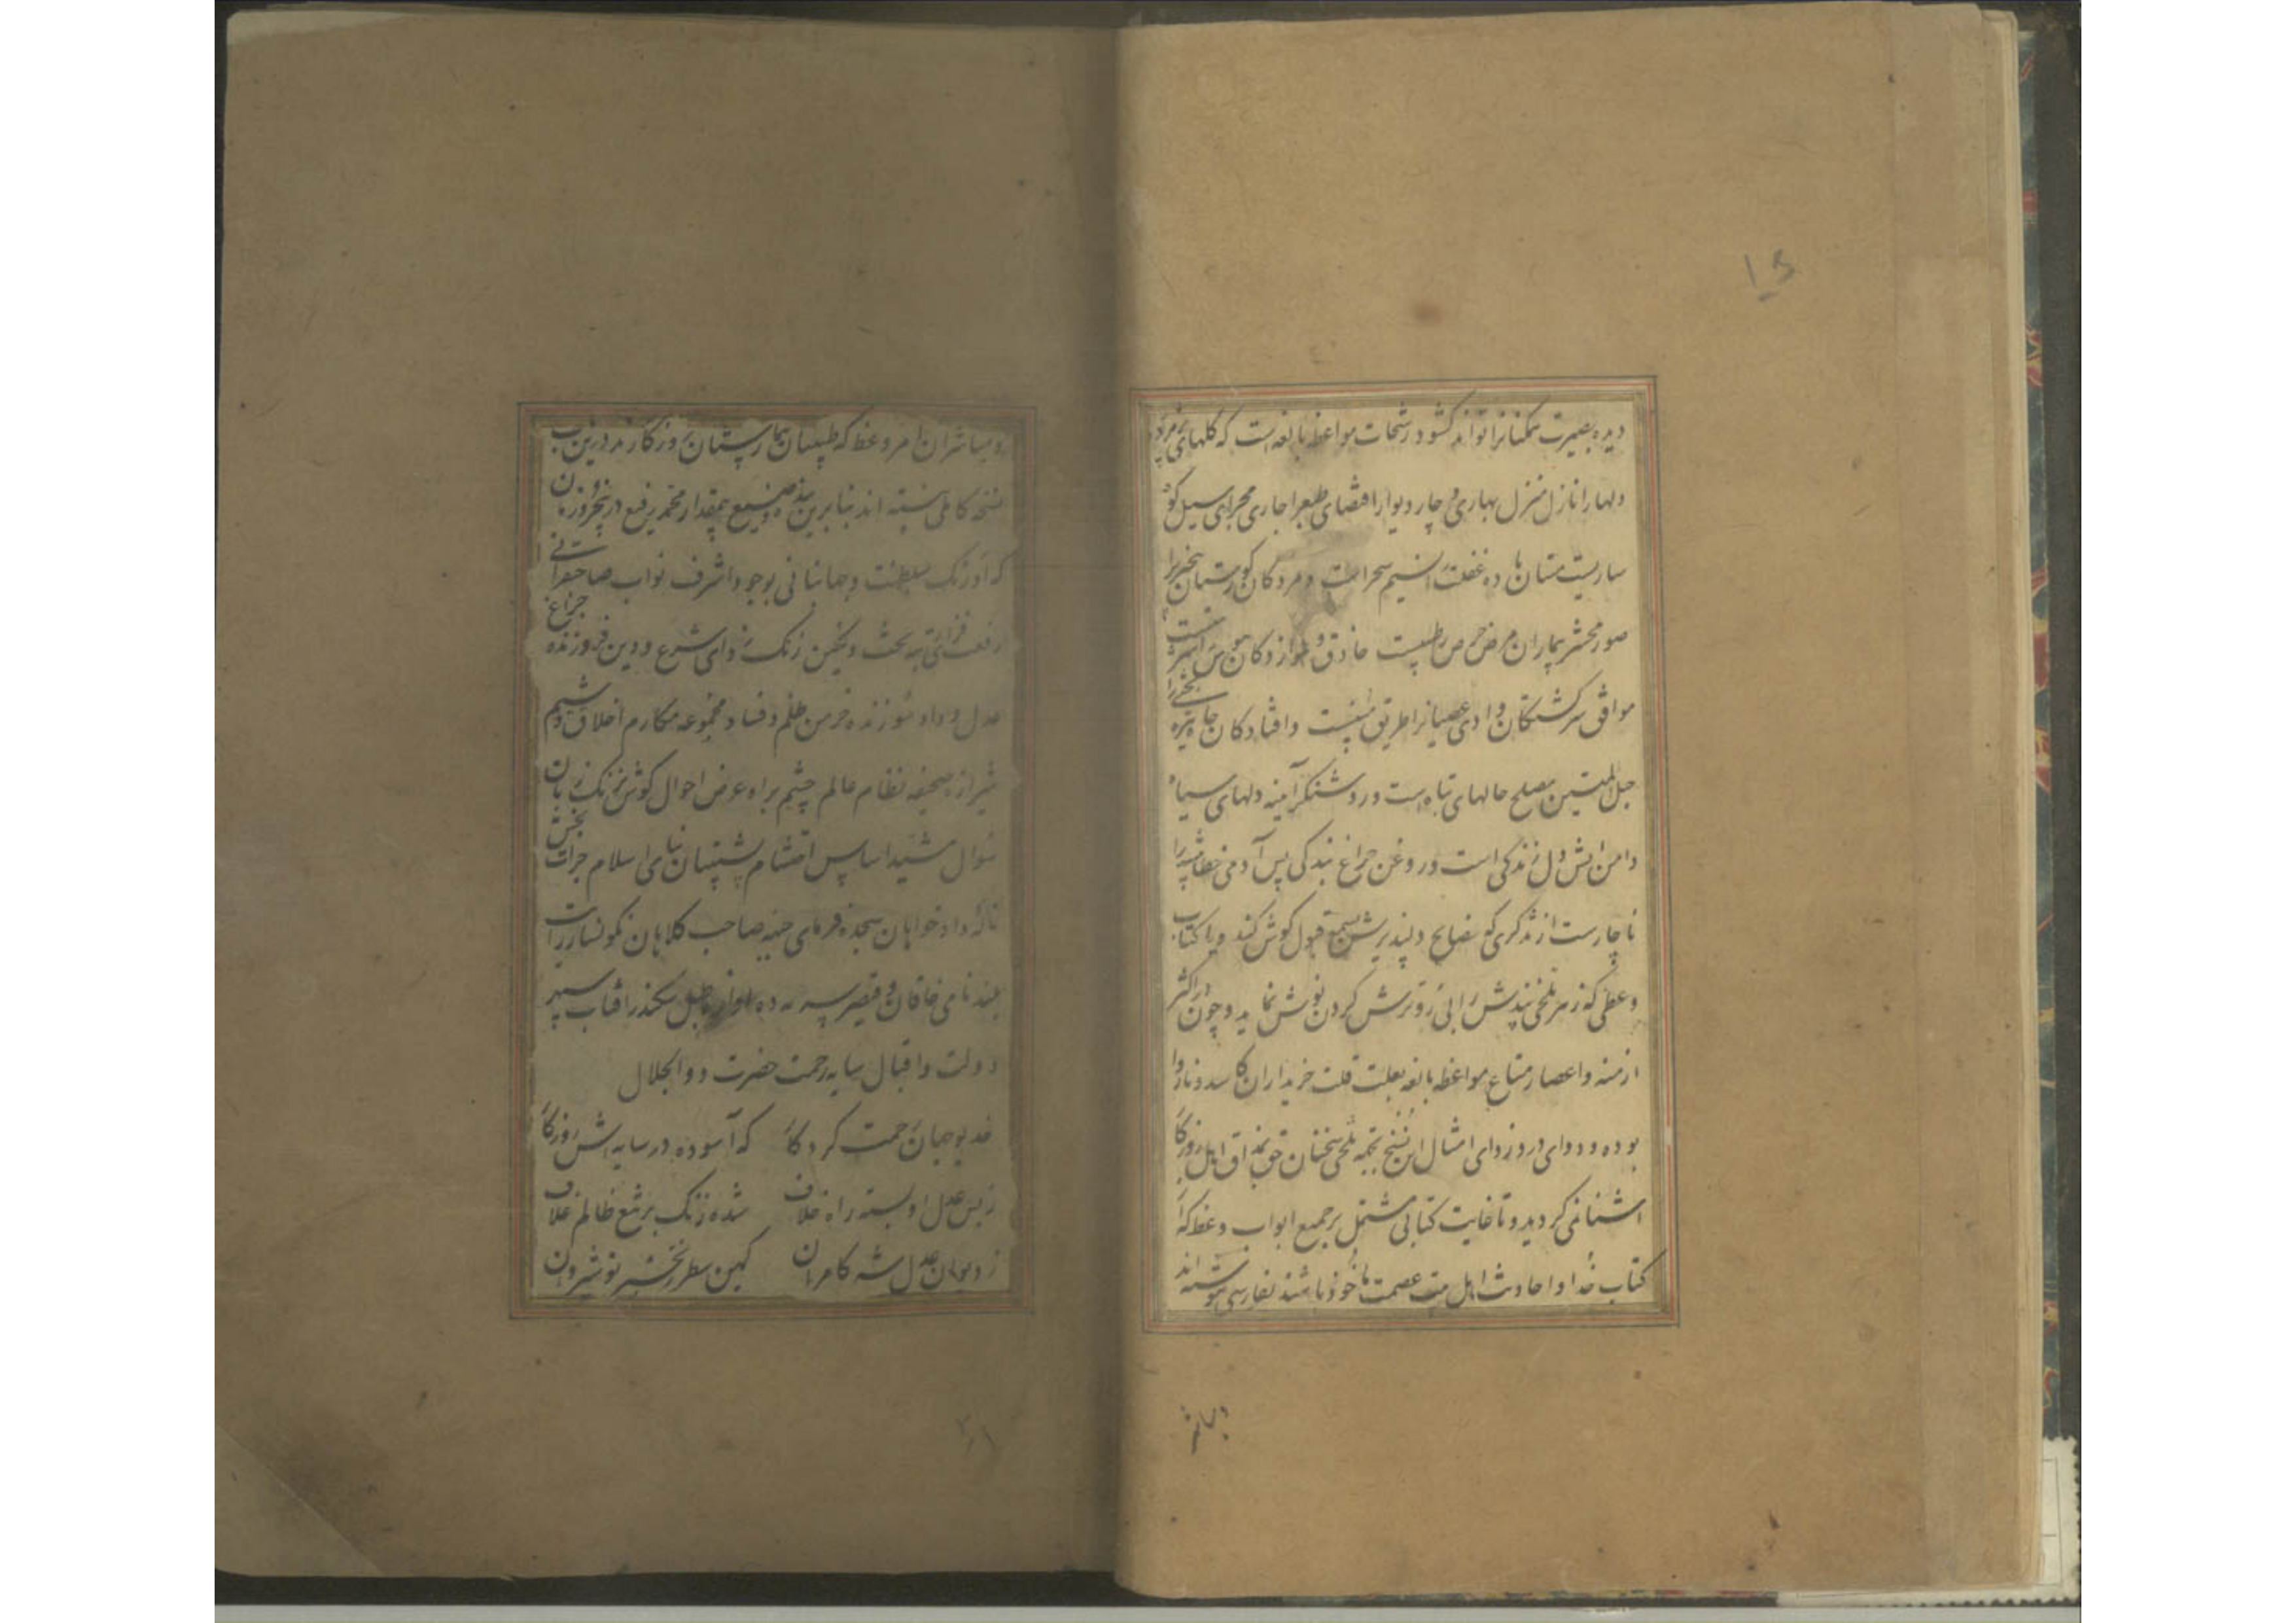 دیده بصیرت همکنانرا تواند کشود رشحات مواعظ بالغه است که کلهای پژمرده
دلهارا نازل منزل بهاری و چار دیوار اعضای طبع را جاری مجرای سیل کوه
ساریست مستان باده غفلت را نسیم سحر است و مردکان کورستان بیخبریرا
صور محشر بیماران مرض حرص را طبیبست حاذق و
موافق سرکشتکان وادی عصیانرا طریق مینست وافتادکان چاه تیره
حبل المتین مصلح حالهای تباه است و روشنکر آینه دلهای سیاه
دامن آتش دل زندکی است و روغن چراغ بندکی پس آدمی خطا پیشه را
ناچارست از مذکری که نصایح دلپذیرش بسمع قبول کوش کند و یا کتاب
وعظی که زهر تلخی پندش را بی رو ترش کردن نوش نماید و چون در اکثر
ازمنه و اعصار متاع مواعظ بالغه بعلت قلت خریداران کاسد و ناروا
بوده و دوای درد زدای امثال این نسخ بجهه تلخی سخنان حق بمذاق اهل روزکار
آشنا نمی کردید و تا غایت کتابی مشتمل بر جمیع ابواب وعظ که از
کتاب خدا و احادیث اهل بیت عصمت ماخوذ باشد بفارسی ننوشته اند
ومباشر
و مباشران امر وعظ که طبیبان بیمارستان روزکارند درین باب
نسخه کاملی نبسته اند بنابرین بنده وضیع بیمقدار محمد رفیع درینجزو زمان
که اورنک سلطنت و جهانبانی بوجود اشرف نواب صاحبقرانی
رفعت فزای تخت و نکین زنک زدای شرع و دین فروزنده چراغ
عدل و داد سوزنده خرمن ظلم و فساد مجموعه مکارم اخلاق و شیم
شیرازه صحیفه نظام عالم چشم براه عرض احوال کوش بزنک زبان
سوال مشید اساس احتشام پشتیبان بنای اسلام جرات بخش
ناله دادخواهان سجده فرمای جبهه صاحب کلاهان نکونسار رایت
بلند نامی خاقان و قیصر طبل سکندر آفتاب سپهر
دولت و اقبال سایه رحمت حضرت ذوالجلال
خدیو جهان رحمت کردکار که آسوده در سایه اش روزکار
ز بس عدل او بسته راه خلاف شده زنک بر تیغ ظالم غلاف
ز دیوان عدل شه کامران کمین سطر زنجیر نوشیروان